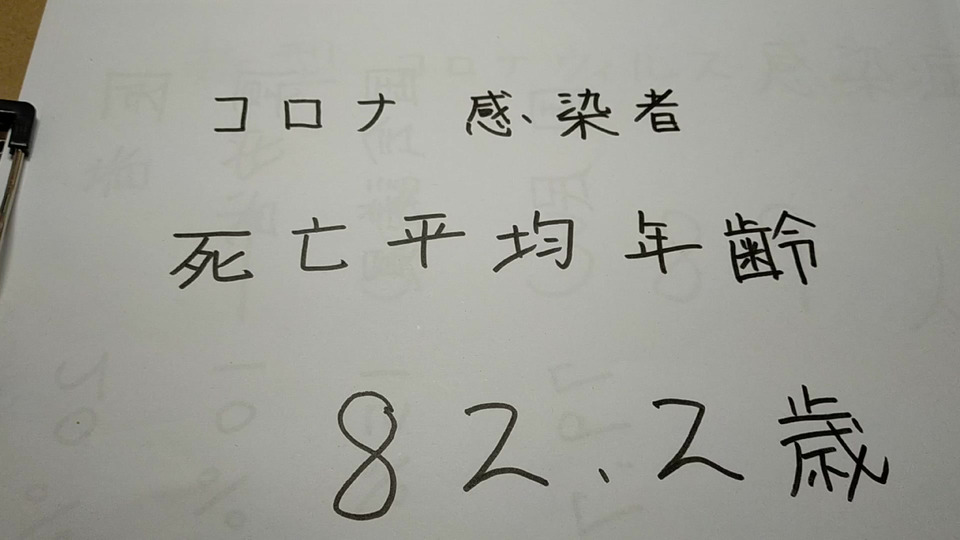 コロナ 感染者
死亡平均年齢
82.2歳